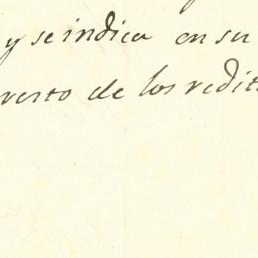 y se indica en su
resto de los redit